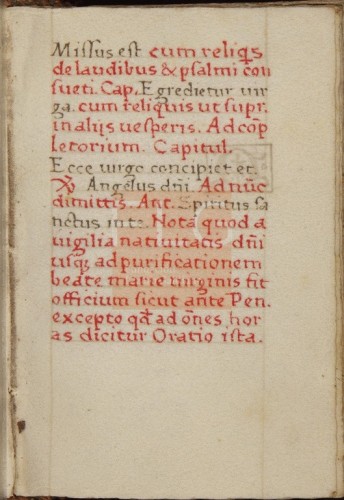 Missus est cum reliq̃s
de laudibus & psalmi con
sueti. Cap. Egredietur uir
ga. cum reliquis ut supr.
in alijs uesperis. Ad cōp
letorium. Capitul.
Ecce uirgo concipiet et.
Angelus dñi. Ad nūc
dimittis. Ant. Spiritus sa
nctus in te. Nota quod a
uigilia natiuitatis dñi
usq; ad purificationem
beate marie uirginis fit
officium sicut ante Pen.
excepto qđ ad oñes hor
as dicitur Oratio ista.